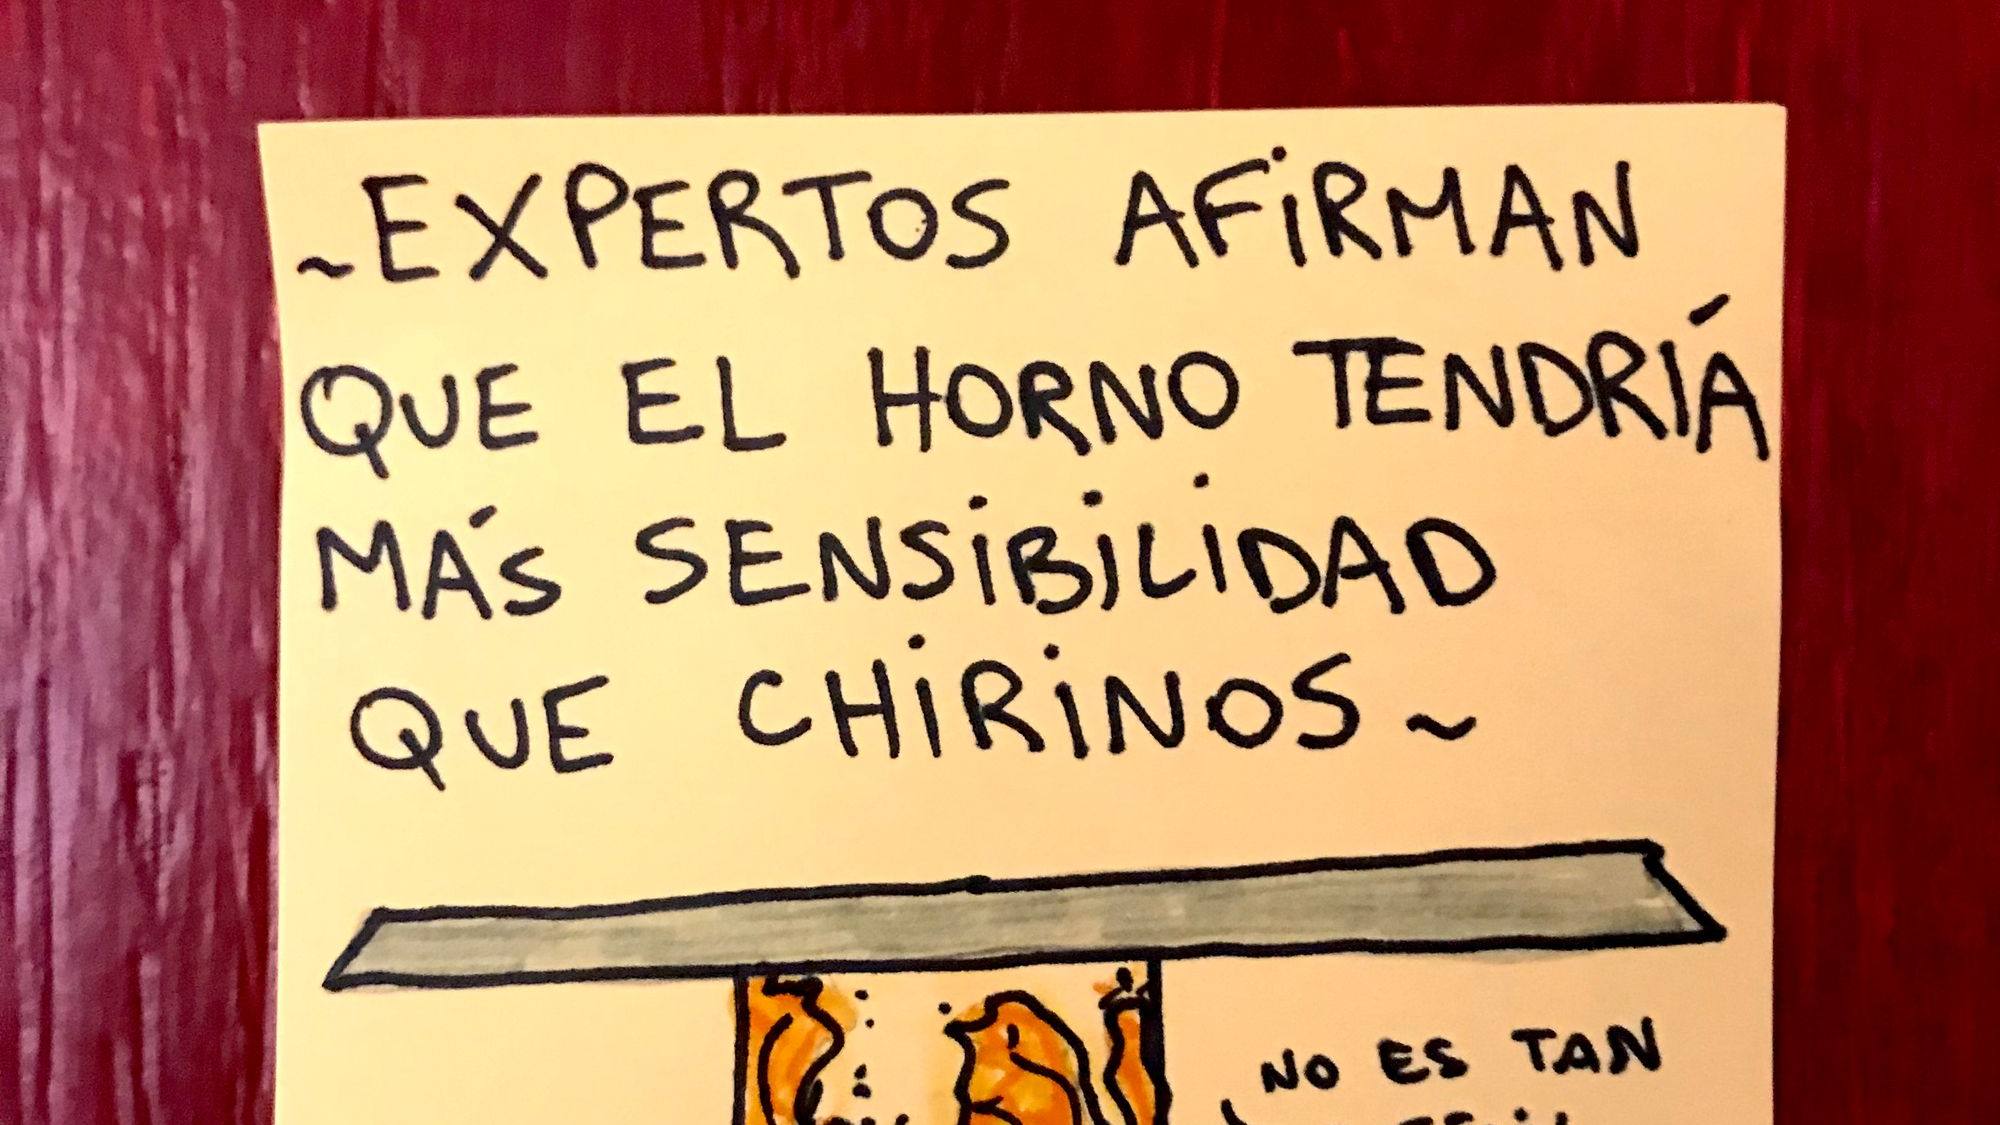 ~EXPERTOS AFIRMAN
QUE EL HORNO TENDRÍA
MÁS SENSIBILIDAD
QUE CHIRINOS~
NO ES TAN